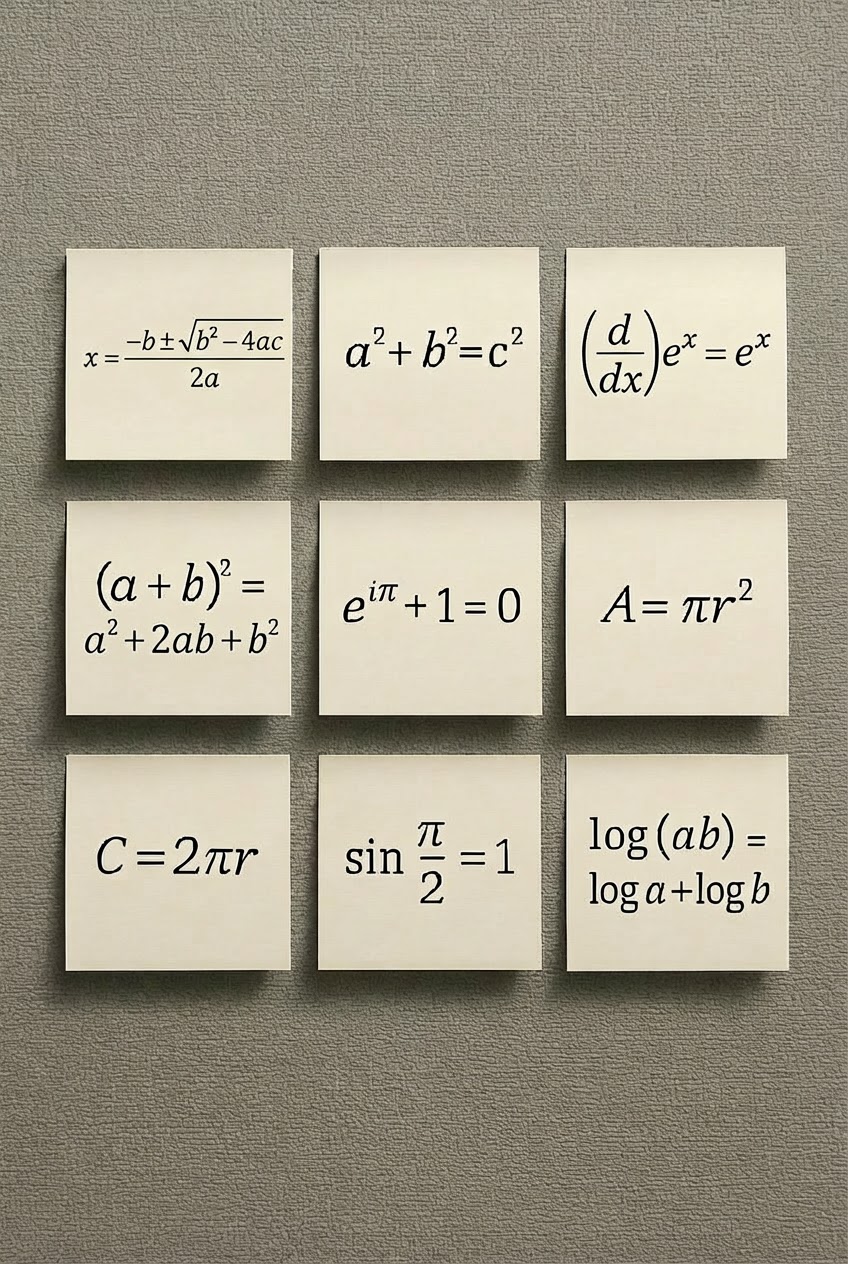 x = (-b ± √(b² − 4ac)) / 2a
a² + b² = c²
(d/dx) eˣ = eˣ
(a + b)² =
a² + 2ab + b²
e^{iπ} + 1 = 0
A = πr²
C = 2πr
sin π/2 = 1
log (ab) =
log a + log b